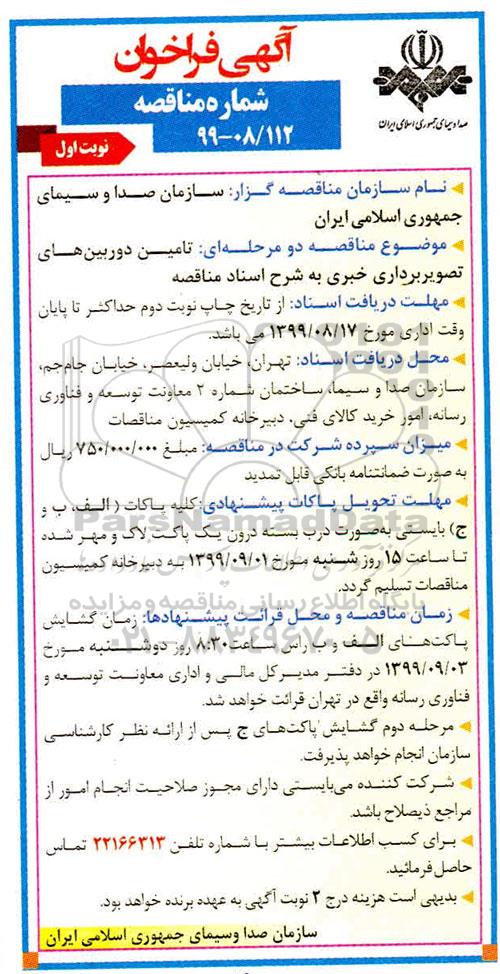 آگهی فراخوان
شماره مناقصه
۹۹-۰۸/۱۱۲
نوبت اول
صدا و سیمای جمهوری اسلامی ایران
نام سازمان مناقصه گزار: سازمان صدا و سیمای
جمهوری اسلامی ایران
موضوع مناقصه دو مرحله‌ای: تامین دوربین‌های
تصویربرداری خبری به شرح اسناد مناقصه
مهلت دریافت اسناد: از تاریخ چاپ نوبت دوم حداکثر تا پایان
وقت اداری مورخ ۱۳۹۹/۰۸/۱۷ می باشد.
محل دریافت اسناد: تهران، خیابان ولیعصر، خیابان جام‌جم،
سازمان صدا و سیما، ساختمان شماره ۲ معاونت توسعه و فناوری
رسانه، امور خرید کالای فنی، دبیرخانه کمیسیون مناقصات
میزان سپرده شرکت در مناقصه: مبلغ ۷۵۰/۰۰۰/۰۰۰ ریال
به صورت ضمانتنامه بانکی قابل تمدید
مهلت تحویل پاکات پیشنهادی: کلیه پاکات ( الف، ب و
ج) بایستی به‌صورت درب بسته درون یک پاکت لاک و مهر شده
تا ساعت ۱۵ روز شنبه مورخ ۱۳۹۹/۰۹/۰۱ به دبیرخانه کمیسیون
مناقصات تسلیم گردد.
زمان مناقصه و محل قرائت پیشنهادها: زمان گشایش
پاکت‌های الف و ب راس ساعت ۸:۳۰ روز دوشنبه مورخ
۱۳۹۹/۰۹/۰۳ در دفتر مدیرکل مالی و اداری معاونت توسعه و
فناوری رسانه واقع در تهران قرائت خواهد شد.
مرحله دوم گشایش پاکت‌های ج پس از ارائه نظر کارشناسی
سازمان انجام خواهد پذیرفت.
شرکت کننده می‌بایستی دارای مجوز صلاحیت انجام امور از
مراجع ذیصلاح باشد.
برای کسب اطلاعات بیشتر با شماره تلفن ۲۲۱۶۶۳۱۳ تماس
حاصل فرمائید.
بدیهی است هزینه درج ۲ نوبت آگهی به عهده برنده خواهد بود.
سازمان صدا وسیمای جمهوری اسلامی ایران
ParsNamadData
پایگاه اطلاع رسانی مناقصه و مزایده
۰۲۱-۸۸۳۴۹۶۷۰-۵